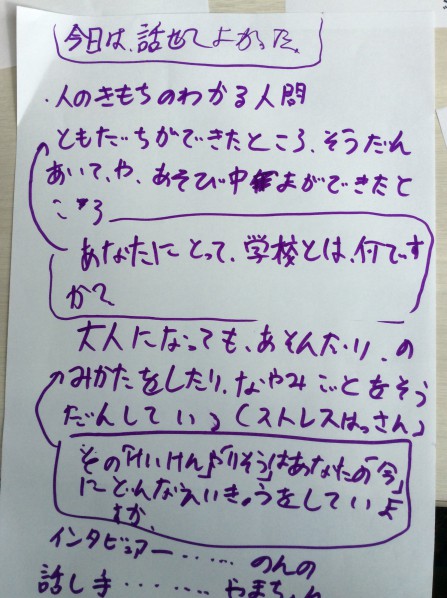 今日は、話せてよかった。
・人のきもちのわかる人間
ともだちができたところ、そうだん
あいて、や、あそび中まができたと
ころ
あなたにとって、学校とは、何です
か?
大人になっても、あそんだり、の
みかたをしたり、なやみごとをそう
だんしている(ストレスはっさん)
その「けいけん」や「りそう」はあなたの「今」
にどんなえいきょうをしていま
すか。
インタビュアー……のんの
話し手………やまちゃん